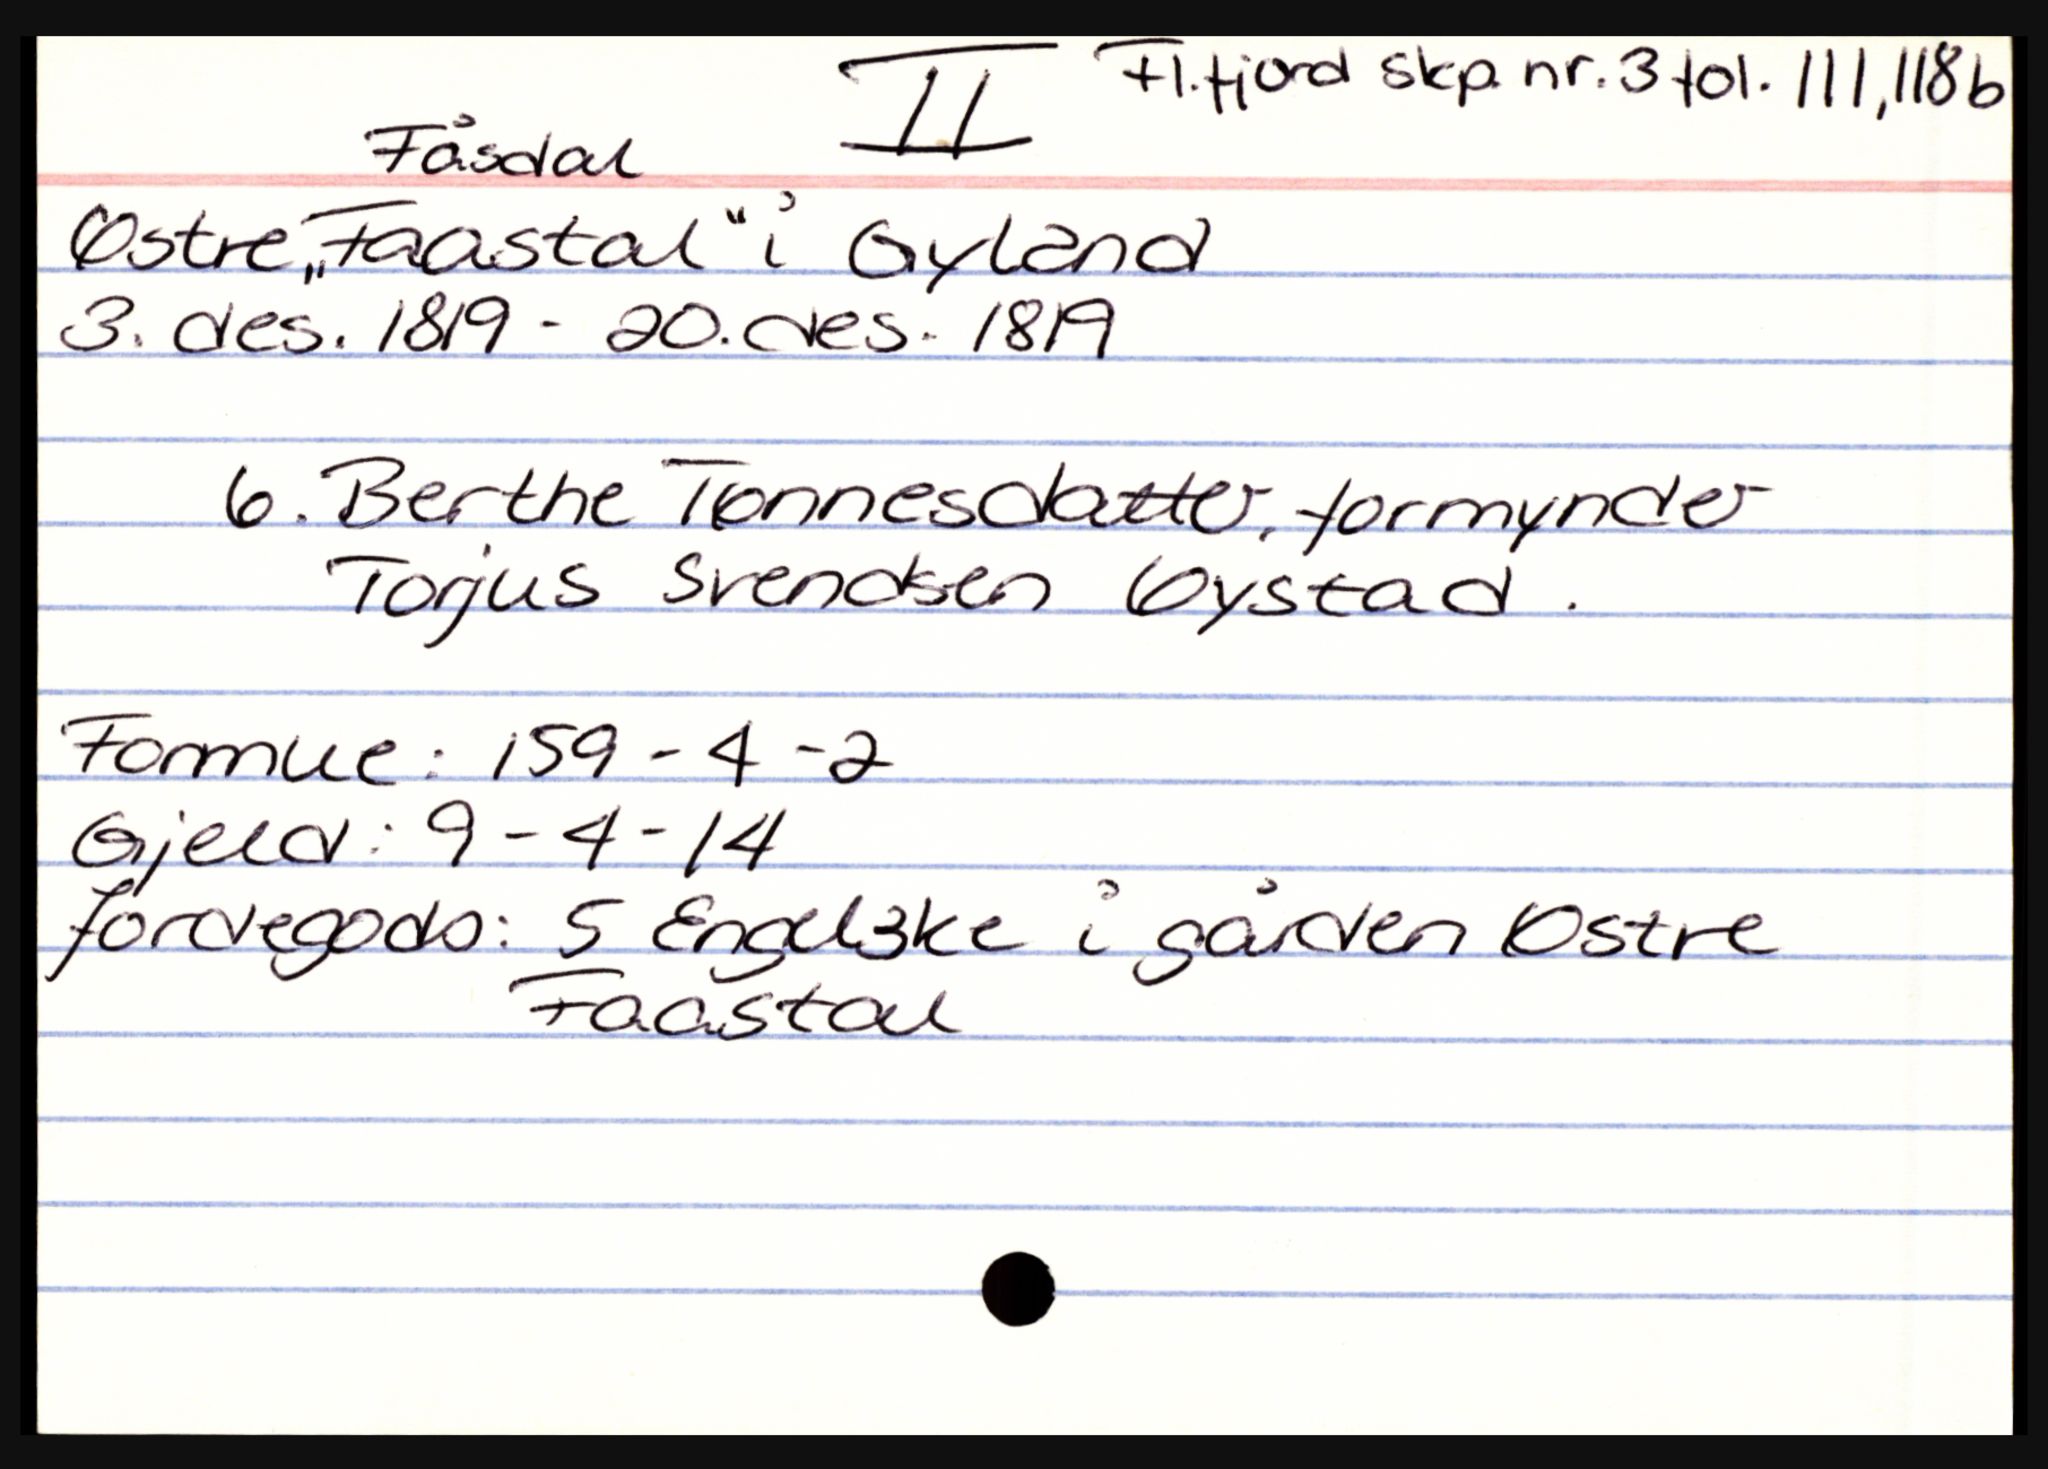 II Fl.fjord skp. nr. 3 fol. 111, 118b
Fåsdal
Østre „Faastal“ i Gyland
3. des. 1819 - 20. des. 1819
6. Berthe Tønnesdatter, formynder
Torjus Svendsen Øystad.
Formue: 159 - 4 - 2
Gjeld: 9 - 4 - 14
Jordegods: 5 Engelske i gården Østre
Faastal